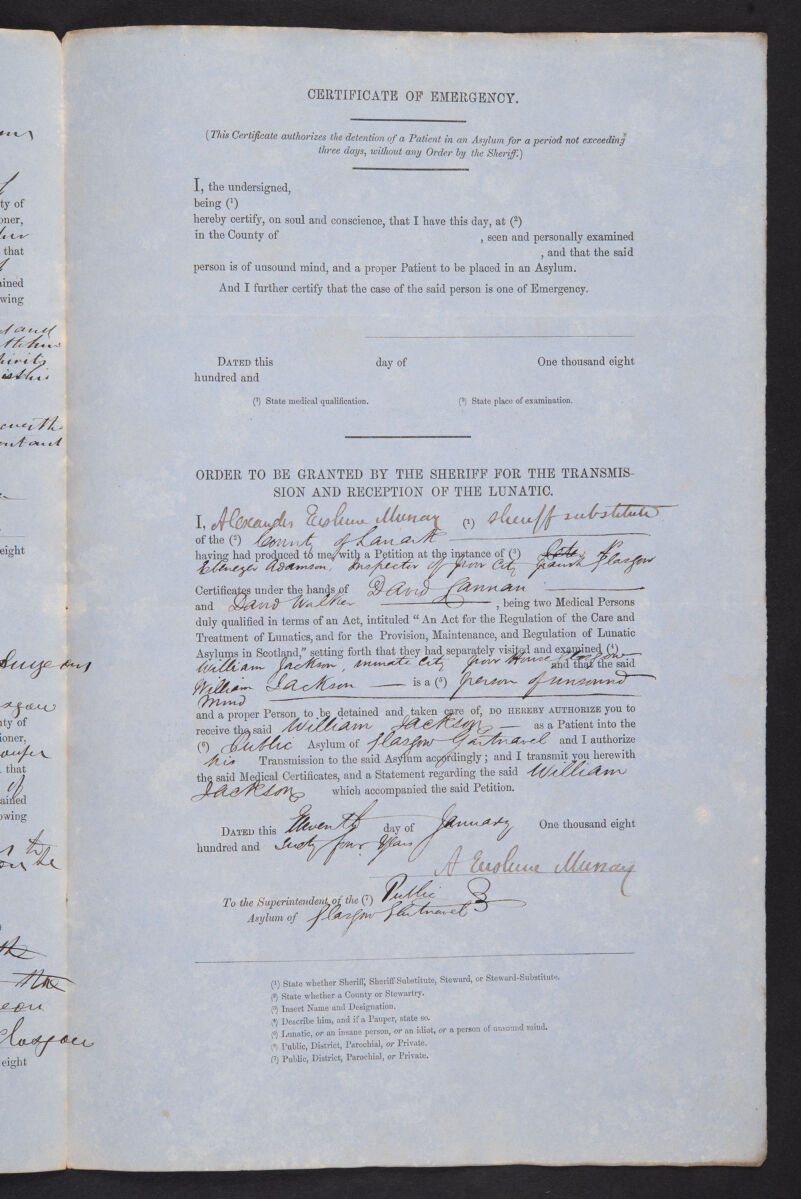 CERTIFICATE OF EMERGENCY.
(This Certificate authorizes the detention of a Patient in an Asylum for a period not exceeding
three days, without any Order by the Sheriff.)
I, the undersigned,
being (¹)
hereby certify, on soul and conscience, that I have this day, at (²)
in the County of , seen and personally examined
, and that the said
person is of unsound mind, and a proper Patient to be placed in an Asylum.
And I further certify that the case of the said person is one of Emergency.
DATED this day of One thousand eight
hundred and
(¹) State medical qualification. (²) State place of examination.
ORDER TO BE GRANTED BY THE SHERIFF FOR THE TRANSMIS-
SION AND RECEPTION OF THE LUNATIC.
I, Alexander Erskine Murray (¹) Sheriff substitute
of the (²) County of Lanark
having had produced to me, with a Petition at the instance of (³)
Ebenezer Adamson, Inspector of Poor City Parish Glasgow
Certificates under the hands of David Lannan
and David Walker , being two Medical Persons
duly qualified in terms of an Act, intituled “An Act for the Regulation of the Care and
Treatment of Lunatics, and for the Provision, Maintenance, and Regulation of Lunatic
Asylums in Scotland,” setting forth that they had separately visited and examined (⁴)
William Jackson, inmate City Poor House Glasgow
and that the said
William Jackson is a (⁵) person of unsound
mind
and a proper Person to be detained and taken care of, DO HEREBY AUTHORIZE you to
receive the said William Jackson as a Patient into the
(⁶) Public Asylum of Glasgow Gartnavel and I authorize
his Transmission to the said Asylum accordingly; and I transmit you herewith
the said Medical Certificates, and a Statement regarding the said William
Jackson which accompanied the said Petition.
DATED this Eleventh day of January One thousand eight
hundred and Sixty four Years
A Erskine Murray
To the Superintendent of the (⁷) Public
Asylum of Glasgow Gartnavel
(¹) State whether Sheriff, Sheriff-Substitute, Steward, or Steward-Substitute.
(²) State whether a County or Stewartry.
(³) Insert Name and Designation.
(⁴) Describe him, and if a Pauper, state so.
(⁵) Lunatic, or an insane person, or an idiot, or a person of unsound mind.
(⁶) Public, District, Parochial, or Private.
(⁷) Public, District, Parochial, or Private.
ty of
oner,
that
ained
wing
eight
nty of
ioner,
that
ained
owing
Glasgow
eight